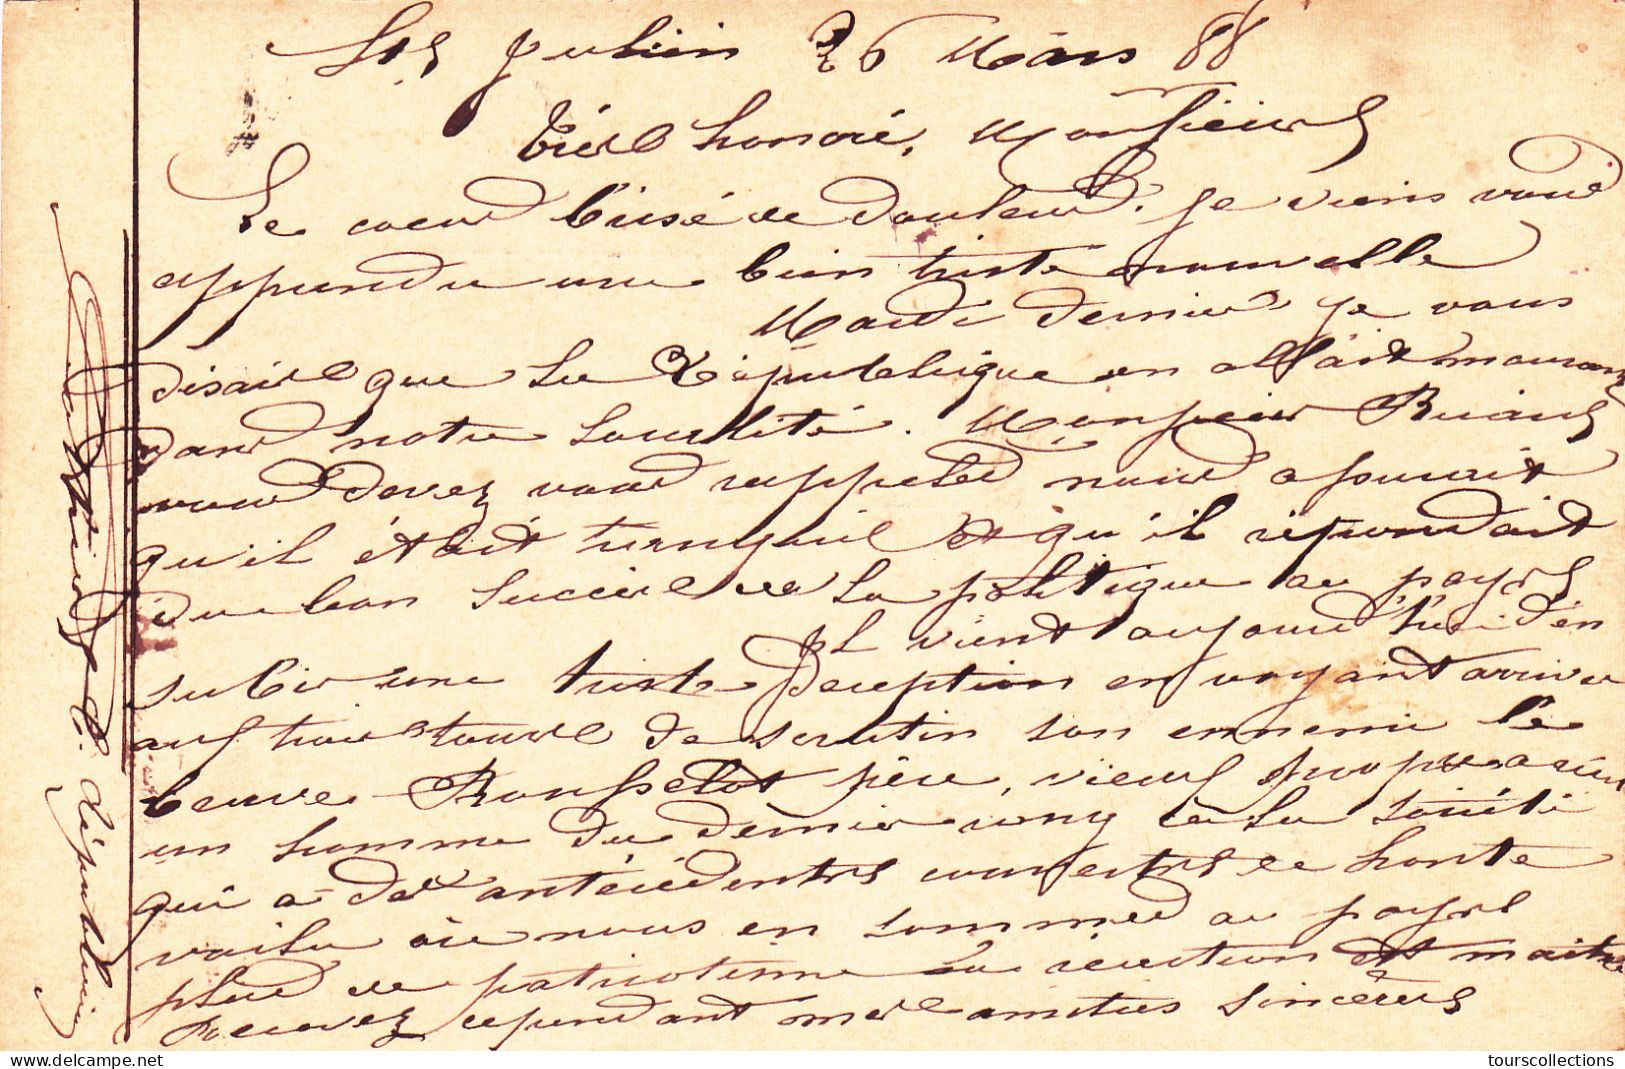 St Julien 26 Mars 88
Très honoré, Monsieur
Le coeur brisé de douleur. je viens vous
apprendre une bien triste nouvelle
Mardi dernier je vous
disais que la République en allait mourant
dans notre localité. Monsieur
vous devez vous rappeler nous assurait
qu'il était tranquil et qu'il répondait
du bon succès de la politique au pays
Il vient aujourd'hui d'en
subir une triste déception en voyant arriver
aux trois tours de scrutin son ennemi le
père, vieux
un homme du dernier rang de la société
qui a des antécédents couverts de honte
voilà où nous en sommes au pays
plus de patriotisme la réaction est maitre
Recevez cependant mes amitiés sincères
républicain
tourscollections